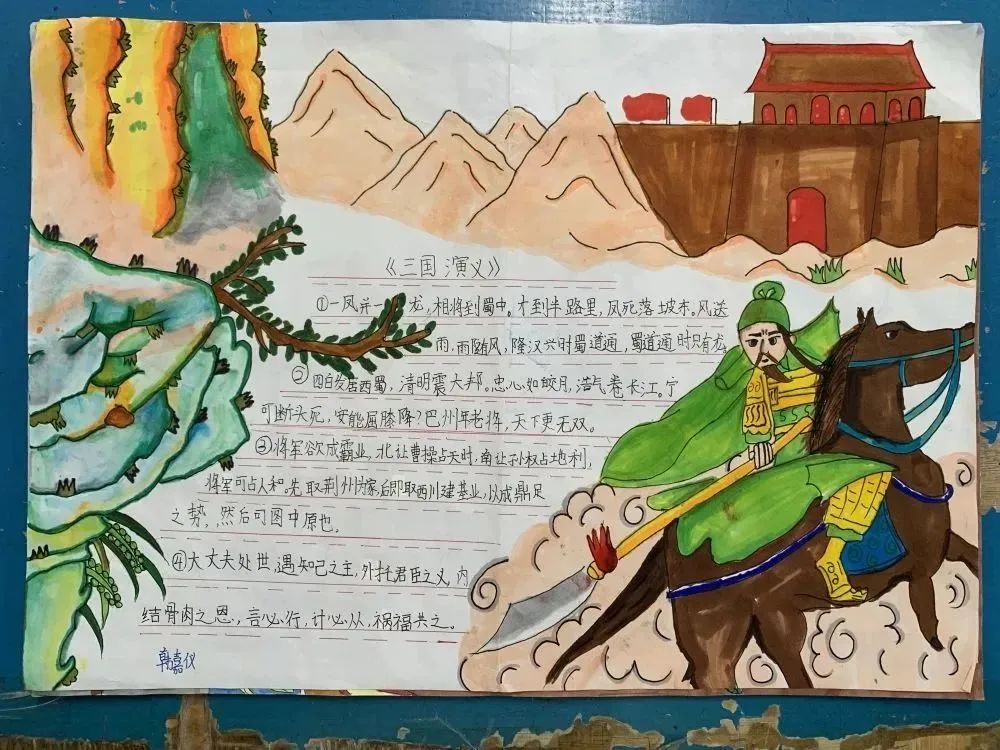 《三国演义》
①一凤并一龙,相将到蜀中。才到半路里,凤死落坡东。风送
雨,雨随风,隆汉兴时蜀道通,蜀道通时只有龙。
② 四白发居西蜀,清明震大邦。忠心如皎月,浩气卷长江。宁
可断头死,安能屈膝降?巴州年老将,天下更无双。
③将军欲成霸业,北让曹操占天时,南让孙权占地利,
将军可占人和。先取荆州为家后即取西川建基业,以成鼎足
之势,然后可图中原也。
④大丈夫处世,遇知己之主,外托君臣之义,内
结骨肉之恩,言必行,计必从,祸福共之。
韩嘉仪